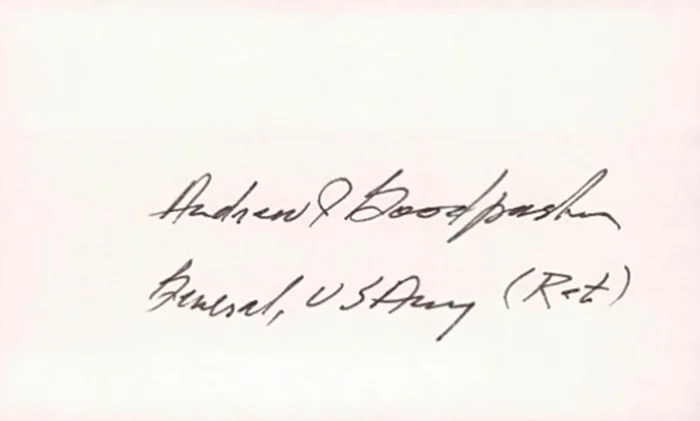 Andrew J Goodpaster
General, US Army (Ret)